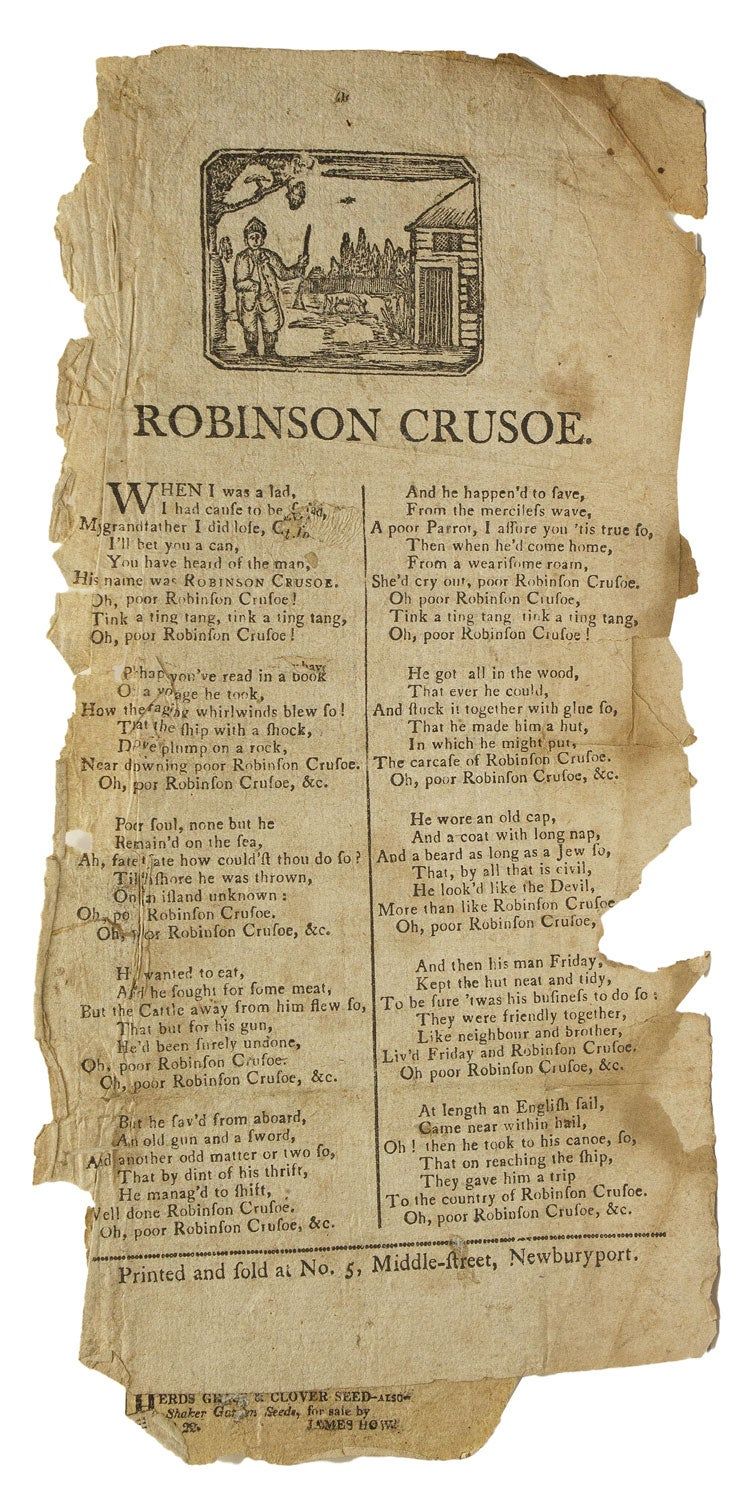 ROBINSON CRUSOE.
WHEN I was a lad,
I had cauſe to be ſad,
My grandfather I did loſe,
I'll bet you a can,
You have heard of the man,
His name was ROBINSON CRUSOE.
Oh, poor Robinſon Cruſoe!
Tink a ting tang, tink a ting tang,
Oh, poor Robinſon Cruſoe!
P hap you've read in a book
O a voyage he took,
How the raging whirlwinds blew ſo!
That the ſhip with a ſhock,
Drove plump on a rock,
Near drowning poor Robinſon Cruſoe.
Oh, poor Robinſon Cruſoe, &c.
Poor ſoul, none but he
Remain'd on the ſea,
Ah, fate! fate how could'ſt thou do ſo?
Till aſhore he was thrown,
On an iſland unknown:
Oh, poor Robinſon Cruſoe.
Oh, poor Robinſon Cruſoe, &c.
He wanted to eat,
And he ſought for ſome meat,
But the Cattle away from him flew ſo,
That but for his gun,
He'd been ſurely undone,
Oh, poor Robinſon Cruſoe.
Oh, poor Robinſon Cruſoe, &c.
But he ſav'd from aboard,
An old gun and a ſword,
And another odd matter or two ſo,
That by dint of his thrift,
He manag'd to ſhift,
Well done Robinſon Cruſoe.
Oh, poor Robinſon Cruſoe, &c.
And he happen'd to ſave,
From the mercileſs wave,
A poor Parrot, I aſſure you 'tis true ſo,
Then when he'd come home,
From a weariſome roam,
She'd cry out, poor Robinſon Cruſoe.
Oh poor Robinſon Cruſoe,
Tink a ting tang, tink a ting tang,
Oh, poor Robinſon Cruſoe!
He got all in the wood,
That ever he could,
And ſtuck it together with glue ſo,
That he made him a hut,
In which he might put,
The carcaſe of Robinſon Cruſoe.
Oh, poor Robinſon Cruſoe, &c.
He wore an old cap,
And a coat with long nap,
And a beard as long as a Jew ſo,
That, by all that is civil,
He look'd like the Devil,
More than like Robinſon Cruſoe
Oh, poor Robinſon Cruſoe,
And then his man Friday,
Kept the hut neat and tidy,
To be ſure 'twas his buſineſs to do ſo:
They were friendly together,
Like neighbour and brother,
Liv'd Friday and Robinſon Cruſoe.
Oh poor Robinſon Cruſoe, &c.
At length an Engliſh ſail,
Came near within hail,
Oh! then he took to his canoe, ſo,
That on reaching the ſhip,
They gave him a trip
To the country of Robinſon Cruſoe.
Oh, poor Robinſon Cruſoe, &c.
Printed and ſold at No. 5, Middle-ſtreet, Newburyport.
HERDS & CLOVER SEED—ALSO—
Shaker Garden Seeds, for sale by
22. JAMES HOW.